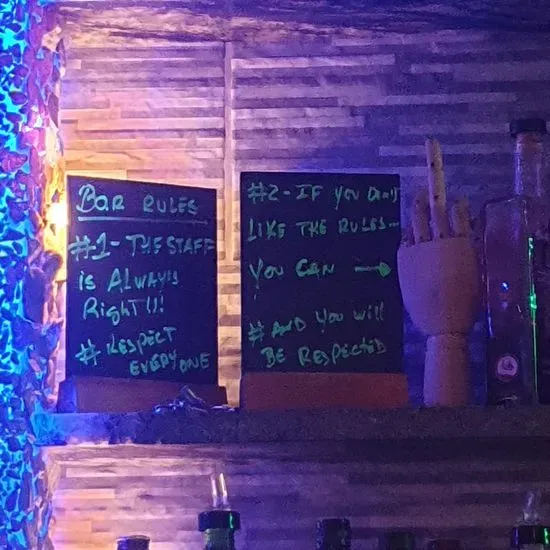 BAR RULES
#1 - THE STAFF
is ALWAYS
RighT!!!
# RESPECT
EVERYONE
#2 - IF YOU DON'T
LIKE THE RULES -
YOU CAN →
# AND YOU Will
BE RESPECTED